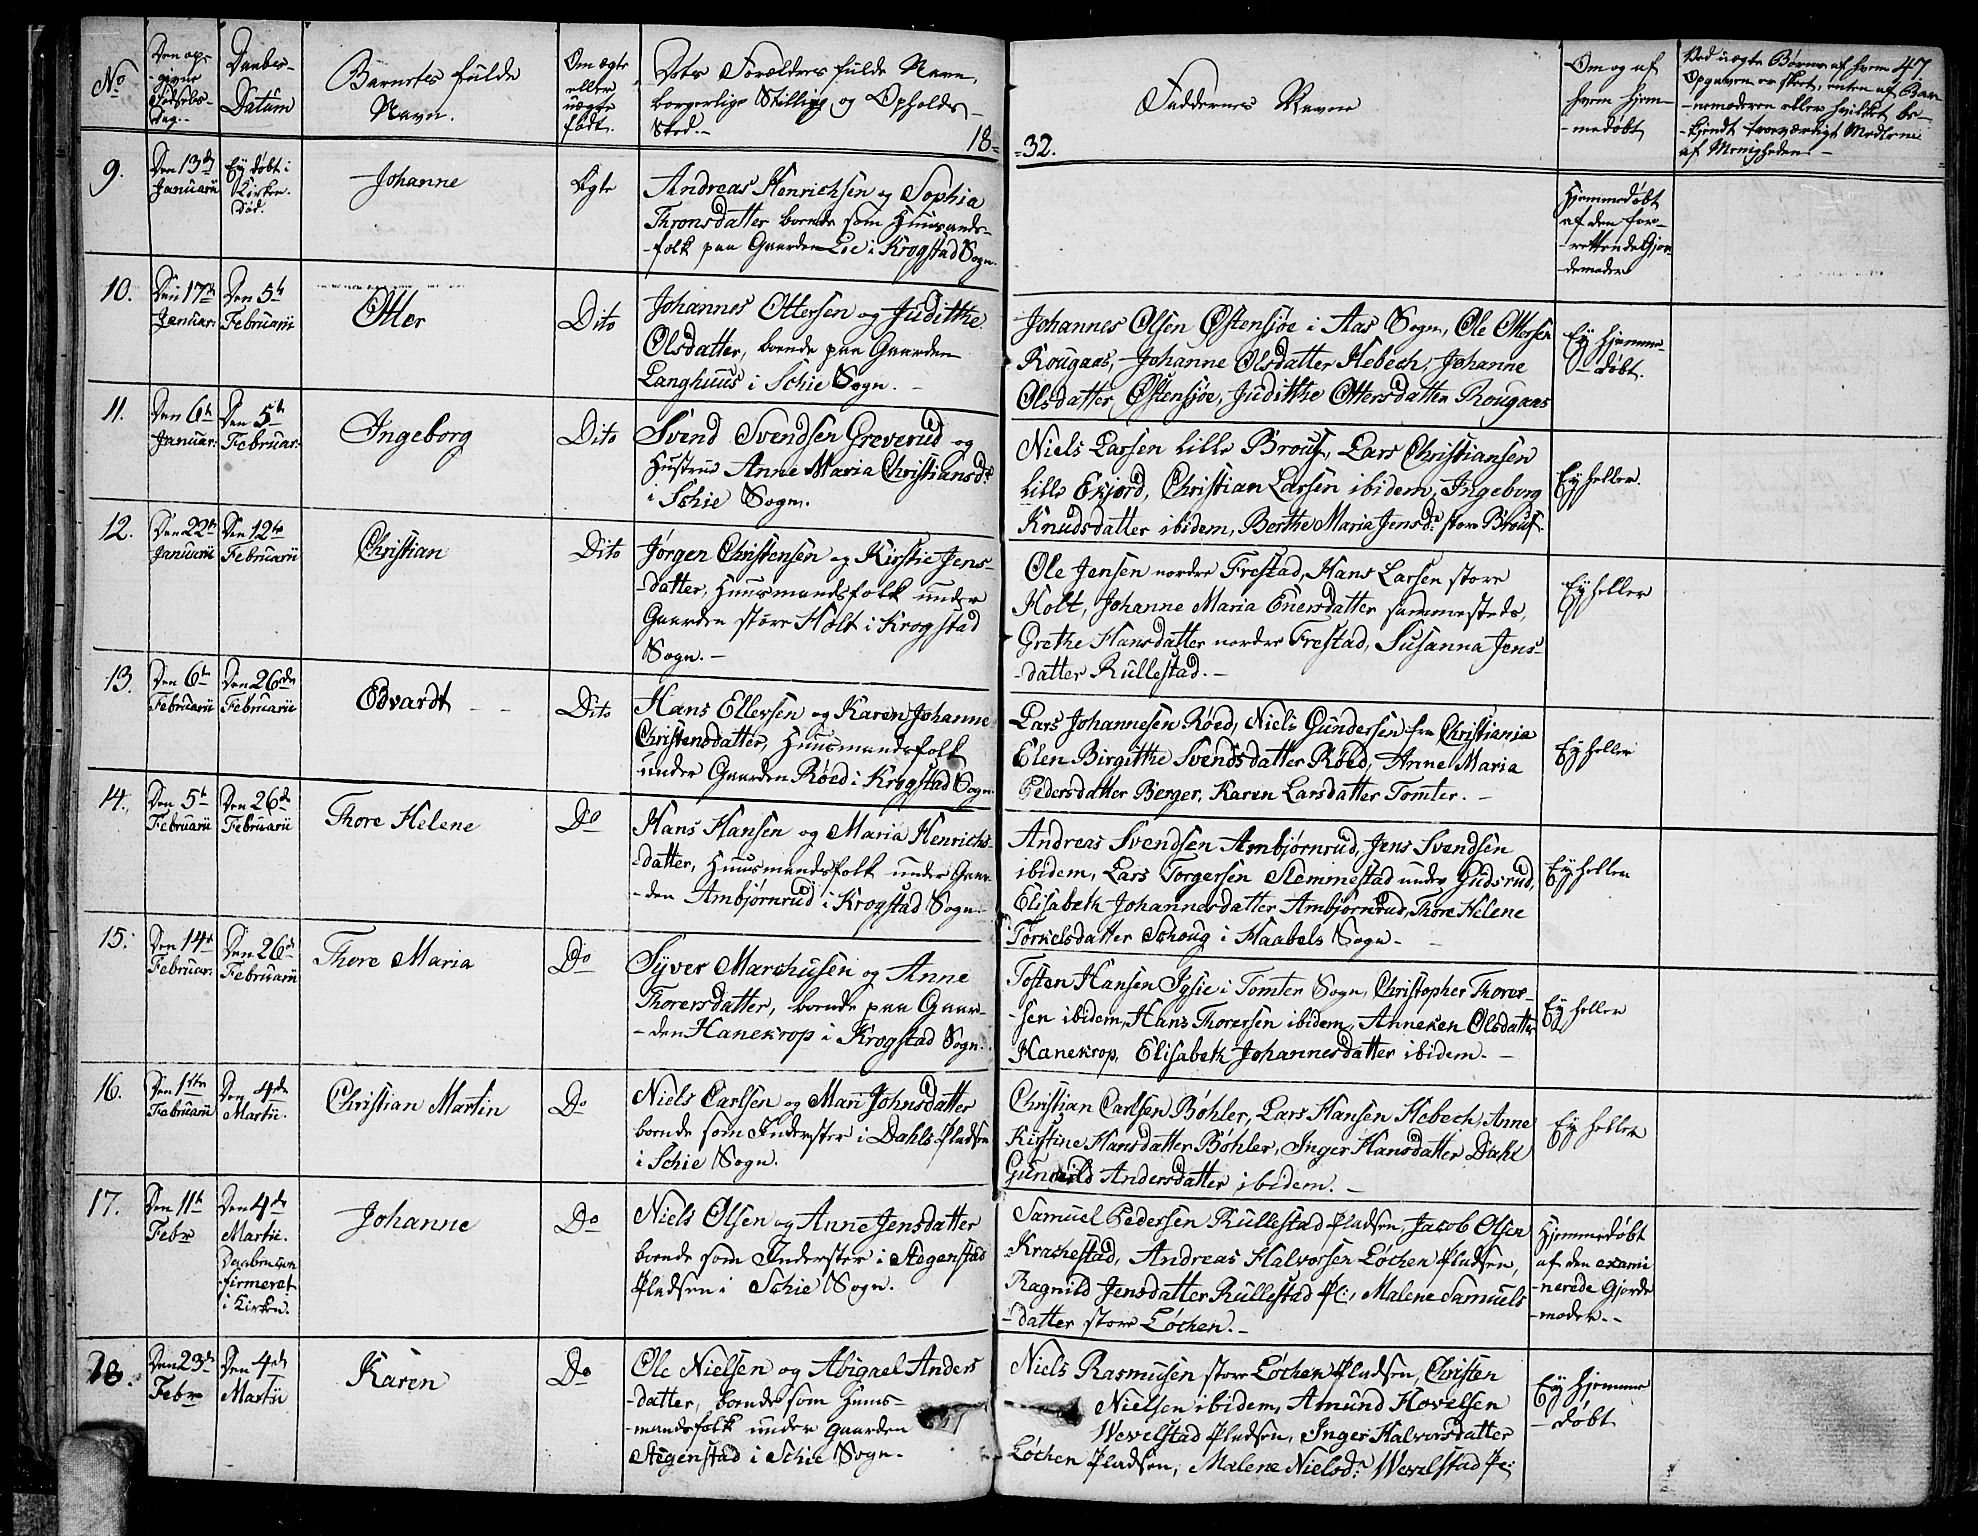 No
Den op-
-givne
Fødsels-
dag.-
Daabs-
Datum
Barnets fulde
Navn.
Om ægte
eller
uægte
født.
Dets Forældres fulde Navn,
borgerlige Stilling og Opholds-
Sted.-
18=
=32.
Faddernes Navne
Om og af
hvem hjem-
-medøbt
Ved uægte Børn: af hvem
Opgaven er skeet, enten af Bar-
-nemoderen eller hvilket be-
-kjendt troeværdigt Medlem
af Menigheden.-
47
9.
Den 13de
Januarii
Ey døbt i
Kirken.
Død.
Johanne
Ægte
Andreas Henrichsen og Sophia
Thronsdatter boende som Huusmands-
-folk paa Gaarden Lie i Krogstad Sogn.
Hjemmedøbt
af den for-
-rettende Gjor-
demoder
10.
Den 17de
Januar:
Den 5te
Februarii
Otter
Dito
Johannes Ottersen og Judithe
Olsdatter, boende paa Gaarden
Langhuus i Schie Sogn.-
Johannes Olsen Østensjøe i Aas Sogn, Ole Ottersen
Rougaas, Johanne Olsdatter Hebech, Johanne
Olsdatter Østensjøe, Judithe Ottersdatter Rougaas
Ey hjemme-
-døbt.
11.
Den 6te
Januar:
Den 5te
Februar:
Ingeborg
Dito
Svend Svendsen Greverud og
Hustrue Anne Maria Christiansdr
i Schie Sogn.
Niels Larsen lille Brous, Lars Christiansen
lille Ekjord, Christian Larsen ibidem, Ingeborg
Knudsdatter ibidem, Berthe Maria Jensdr store Brous.
Ey heller.
12.
Den 22de
Januarii
Den 12te
Februarii
Christian
Dito
Jørgen Christensen og Kirstie Jens-
-datter, Huusmandsfolk under
Gaarden store Holt i Krogstad
Sogn.-
Ole Jensen nordre Frestad, Hans Larsen store
Holt, Johanne Maria Enersdatter sammesteds,
Grethe Hansdatter nordre Frestad, Susanna Jens-
-datter Rullestad.-
Ey heller
13.
Den 6te
Februarii
Den 26de
Februarii
Edvardt
Dito
Hans Ellersen og Karen Johanne
Christensdatter, Huusmandsfolk
under Gaarden Røed i Krogstad Sogn.
Lars Johannesen Røed, Niels Gundersen fra Christiania
Elen Birgitthe Svendsdatter Røed, Anne Maria
Pedersdatter Berger, Karen Larsdatter Tomter.-
Ey heller
14.
Den 5te
Februarii
Den 26de
Februarii
Thore Helene
Do
Hans Hansen og Maria Henrichs-
-datter, Huusmandsfolk under Gaar-
-den Ambjørnrud i Krogstad Sogn.
Andreas Svendsen Ambjørnrud, Jens Svendsen
ibidem, Lars Torgersen Slemmestad under Gudsrud,
Elisabeth Johannesdatter Ambjørnrud, Thore Helene
Torkelsdatter Schoug i Haabels Sogn-
Ey heller
15.
Den 14de
Februar.
Den 26de
Februarii
Thore Maria
Do
Syver Marchusen og Anne
Thorersdatter, boende paa Gaar-
-den Hanekrop i Krogstad Sogn.
Tosten Hansen Igsie i Tomter Sogn, Christopher Thorer-
-sen ibidem, Hans Thorersen ibidem, Anneken Olsdatter
Hanekrop, Elisabeth Johannesdatter ibidem.-
Ey heller
16.
Den 1ste
Februarii
Den 4de
Martii.
Christian Martin
Do
Niels Carlsen og Mari Johnsdatter
boende som Inderster i Dahls Pladsen
i Schie Sogn.
Christian Carlsen Bøhler, Lars Hansen Hebech, Anne
Kirstine Hansdatter Bøhler, Inger Hansdatter Dahl
Gunild Andersdatter ibidem.-
Ey heller
17.
Den 11te
Febr
Den 4de
Martii.
Daaben con-
firmeret
i Kirken.
Johanne
Do
Niels Olsen og Anne Jensdatter
boende som Inderster i Stegenstad
Pladsen i Schie Sogn.
Samuel Pedersen Rullestad Pladsen, Jacob Olsen
Krachestad, Andreas Halvorsen Løchen Pladsen,
Ragnild Jensdatter Rullestad Pl:, Malene Samuels-
-datter store Løchen.-
Hjemmedøbt
af den exami-
-nerede Gjorde-
-moder.-
18.
Den 23de
Febr
Den 4de
Martii
Karen
Do
Ole Nielsen og Abigael Anders
-datter, boende som Huus-
-mandsfolk under Gaarden
Stegenstad i Schie Sogn.
Niels Rasmusen store Løchen Pladsen, Christen
Nielsen ibidem, Amund Hovelsen
Wevelstad Pladsen, Inger Halvorsdatter
Løchen Pladsen, Malene Nielsdr Wevelstad Pl:
Ey hjemme
-døbt